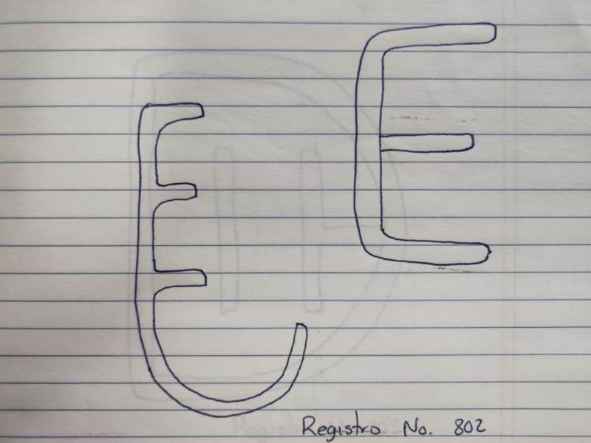 E
Registro No. 802